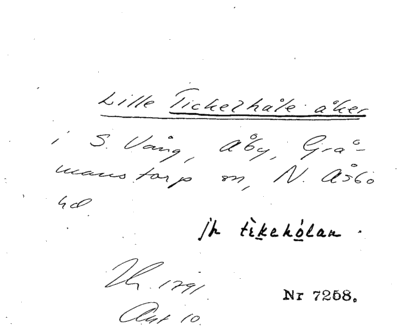 Lille Tickelhåle åker
i S. Vång, Åby, Grå-
manstorp sn, N. Åsbo
hd.
jh tikehòlan.
1791.
Akt 10.
Nr 7258.